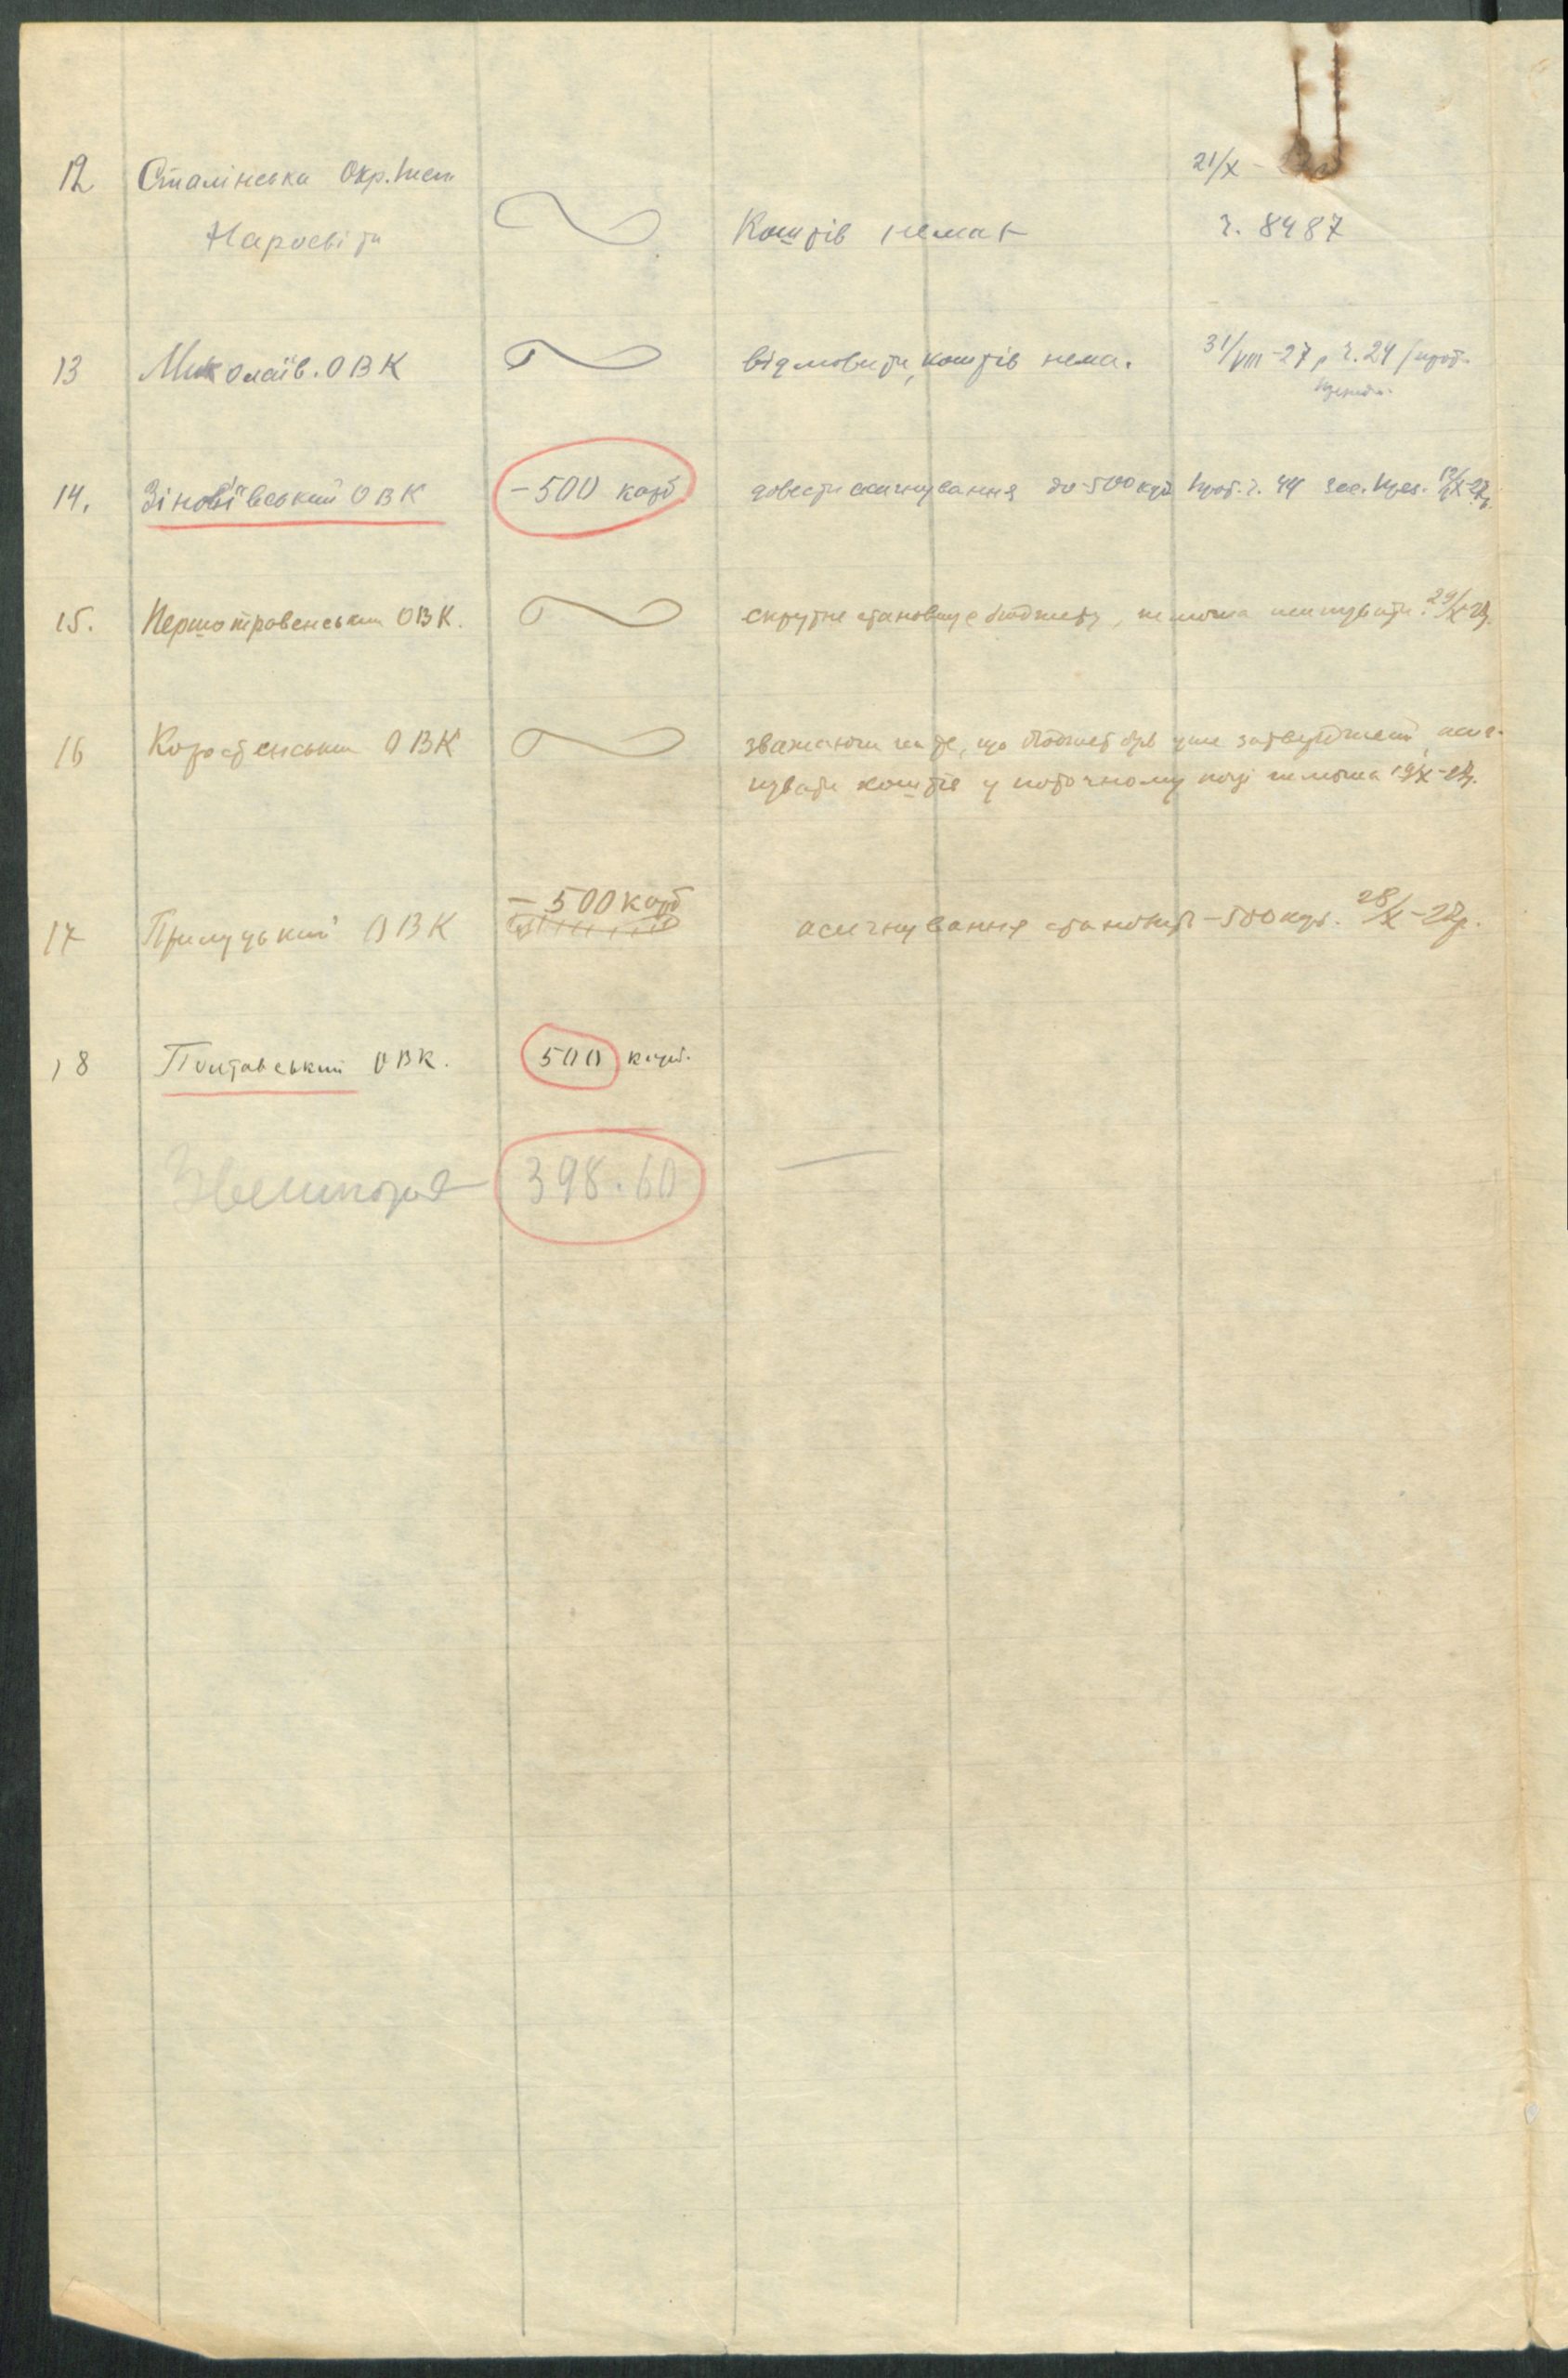 12 Сталінська Окр. Інсп 21/X -
Наросвіти Коштів немає ч. 8487
13 Миколаїв. ОВК відмовити, коштів нема. 31/VIII-27 р ч. 24 /прот.
14. Зінов'ївський ОВК -500 карб довести асигнування до 500 крб прот. ч. 44 зас. през. 12/IX-27р.
15. Першотравенський ОВК. скрутне становище бюджету, неможна асигнувати. 29/X-27р.
16 Коростенський ОВК зважаючи на те, що бюджет був уже затверджений, асиг-
нувати коштів у поточному році неможна 19/X-27р.
17 Прилуцький ОВК -500 карб асигнування становить -500 крб. 28/X-27р.
18 Полтавський ОВК. 500 карб.
Звенигород 398.60 —